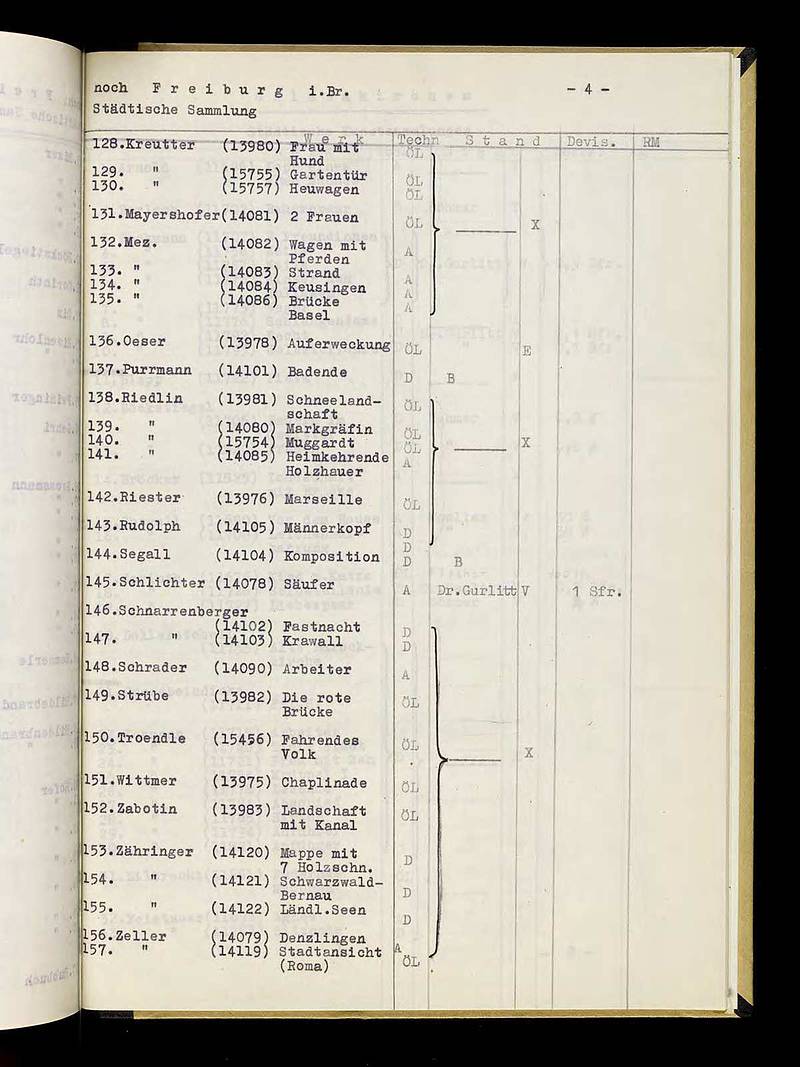 noch F r e i b u r g i.Br. - 4 -
Städtische Sammlung
W e r k Techn S t a n d Devis. RM
128.Kreutter (13980) Frau mit ÖL
Hund
129. " (15755) Gartentür ÖL
130. " (15757) Heuwagen ÖL
131.Mayershofer(14081) 2 Frauen ÖL X
132.Mez. (14082) Wagen mit A
Pferden
133. " (14083) Strand A
134. " (14084) Keusingen A
135. " (14086) Brücke A
Basel
136.Oeser (13978) Auferweckung ÖL E
137.Purrmann (14101) Badende D B
138.Riedlin (13981) Schneeland- ÖL
schaft
139. " (14080) Markgräfin ÖL
140. " (15754) Muggardt ÖL X
141. " (14085) Heimkehrende A
Holzhauer
142.Riester (13976) Marseille ÖL
143.Rudolph (14105) Männerkopf D
D
144.Segall (14104) Komposition D B
145.Schlichter (14078) Säufer A Dr.Gurlitt V 1 Sfr.
146.Schnarrenberger
(14102) Fastnacht D
147. " (14103) Krawall D
148.Schrader (14090) Arbeiter A
149.Strübe (13982) Die rote ÖL
Brücke
150.Troendle (15456) Fahrendes ÖL
Volk X
151.Wittmer (13975) Chaplinade ÖL
152.Zabotin (13983) Landschaft ÖL
mit Kanal
153.Zähringer (14120) Mappe mit D
7 Holzschn.
154. " (14121) Schwarzwald- D
Bernau
155. " (14122) Ländl.Seen D
156.Zeller (14079) Denzlingen A
157. " (14119) Stadtansicht ÖL
(Roma)